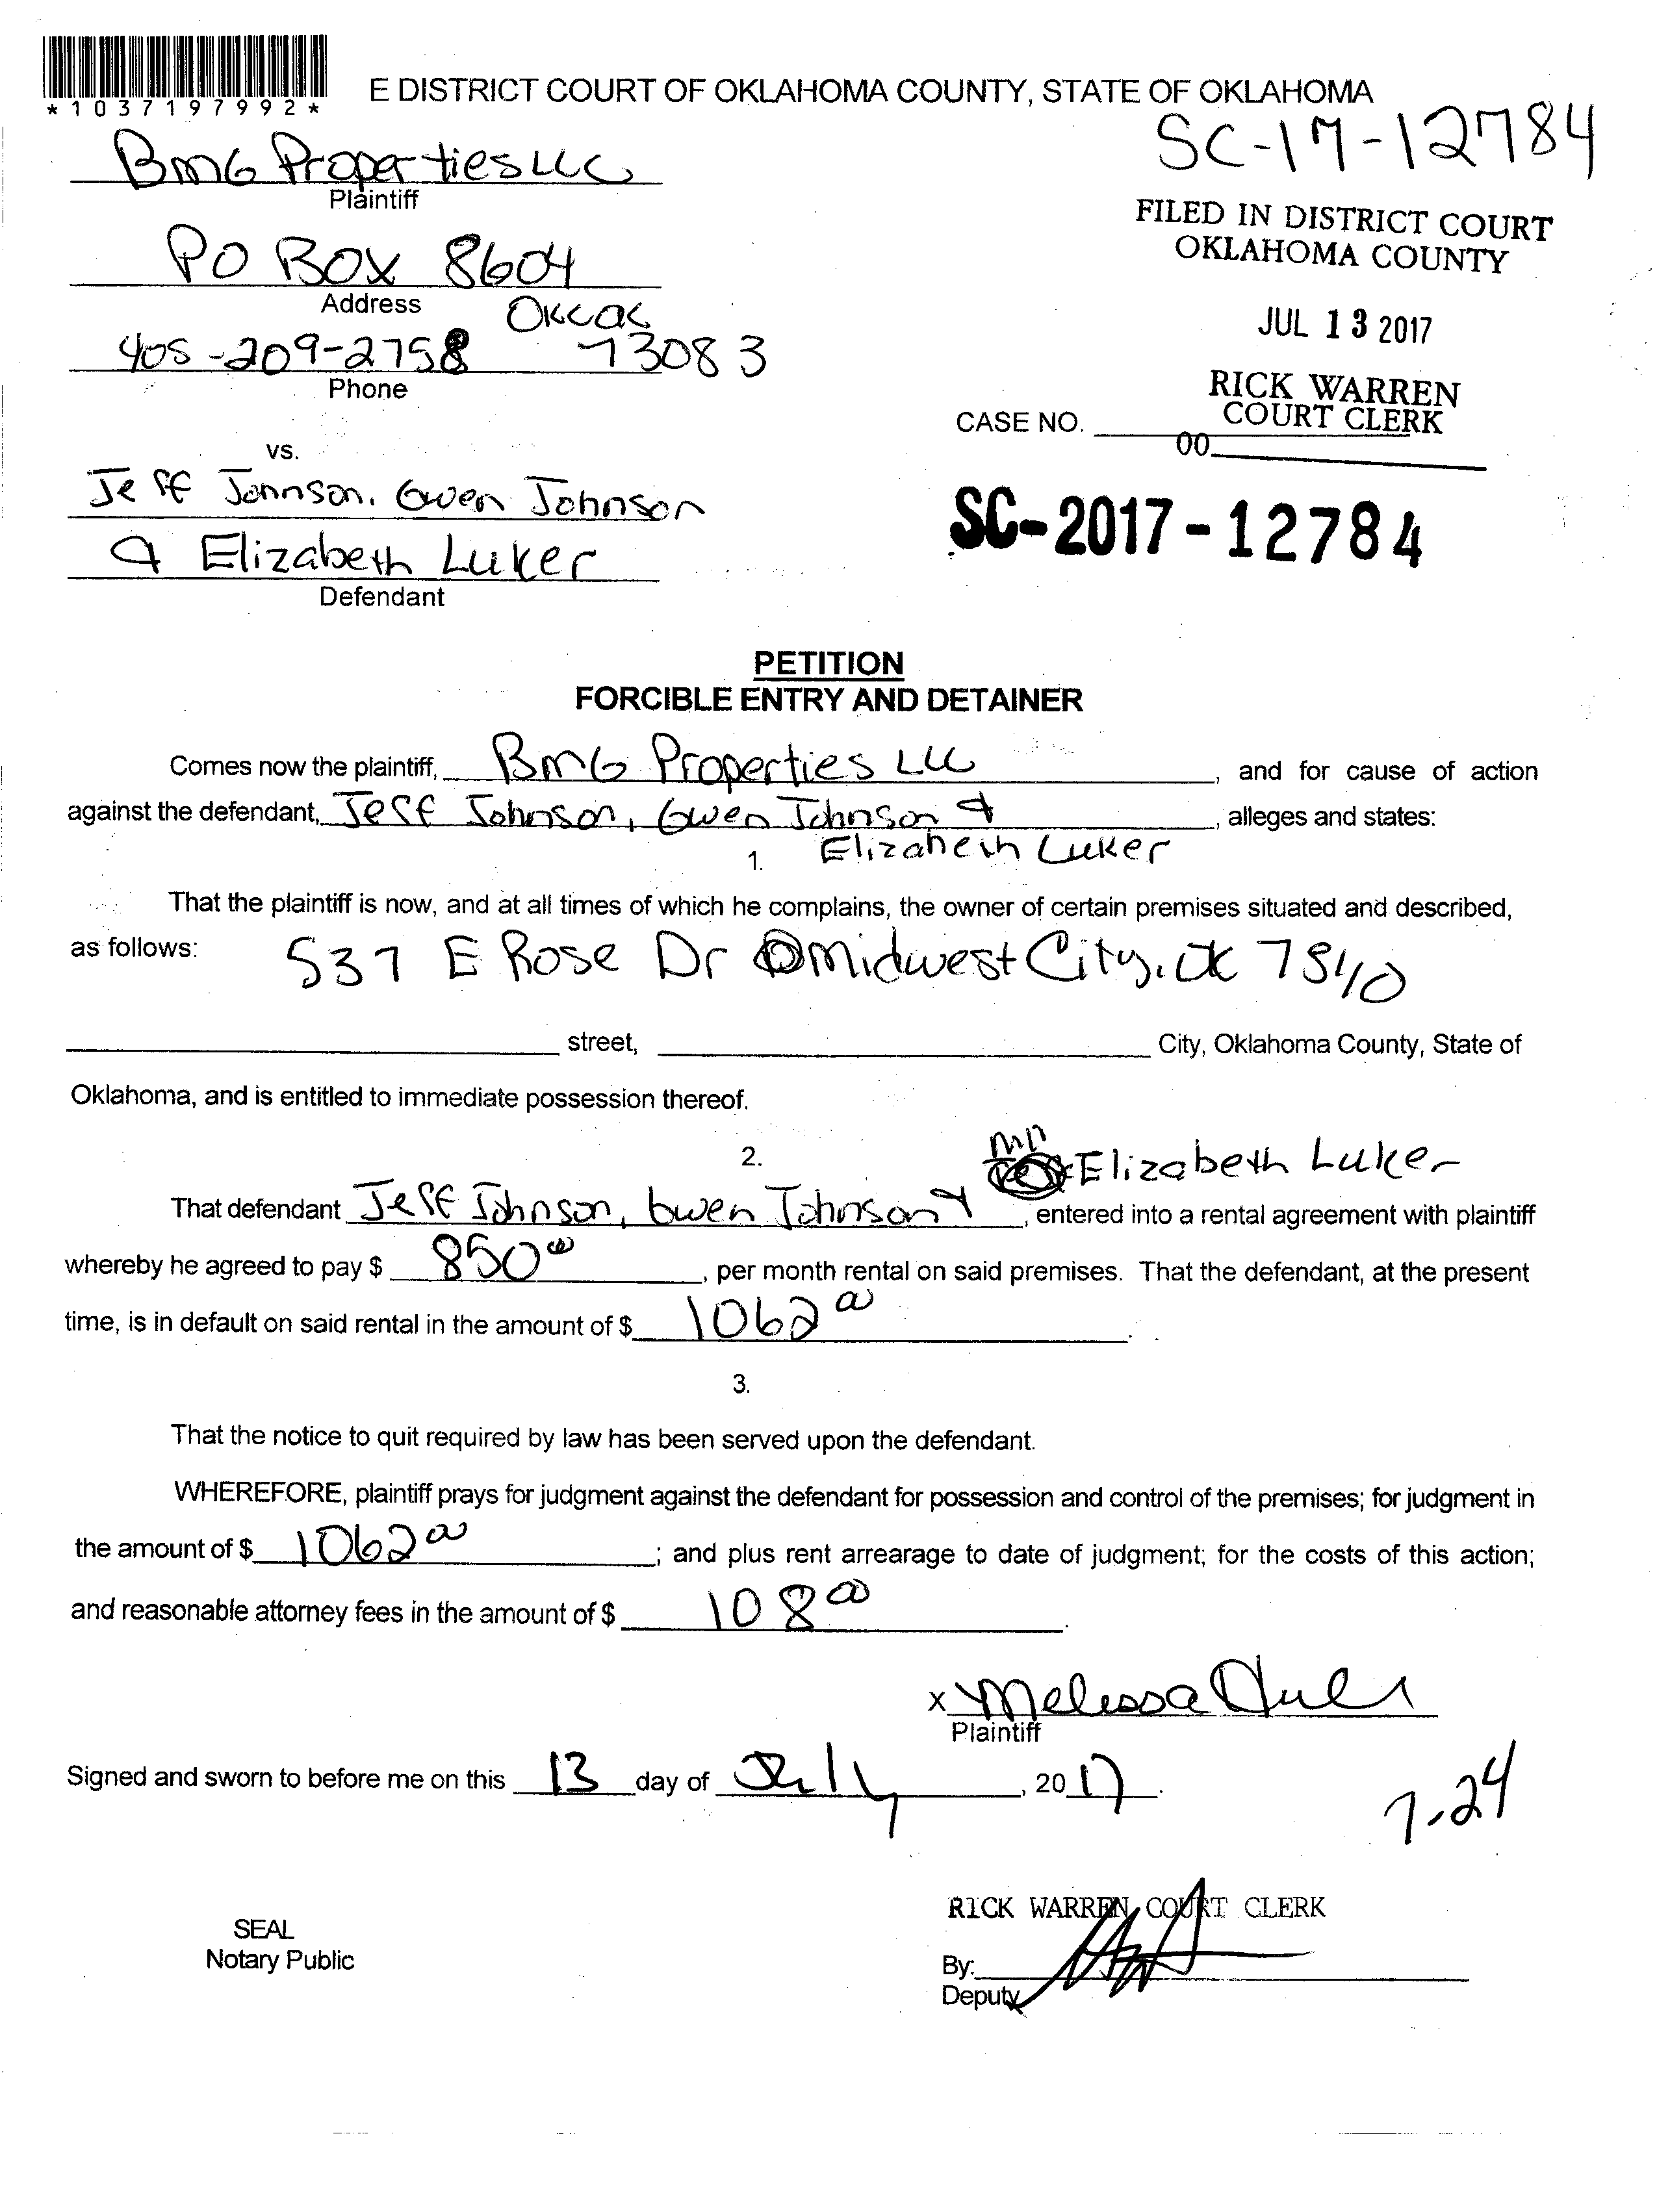 *1037197992*
E DISTRICT COURT OF OKLAHOMA COUNTY, STATE OF OKLAHOMA
SC-17-12784
BMG Properties LLC
Plaintiff
FILED IN DISTRICT COURT
OKLAHOMA COUNTY
PO BOX 8604
Address
JUL 13 2017
405-209-2758 73083
Phone
RICK WARREN
COURT CLERK
CASE NO.
00
vs.
Jeff Johnson, Gwen Johnson
& Elizabeth Luker
Defendant
SC-2017-12784
PETITION
FORCIBLE ENTRY AND DETAINER
Comes now the plaintiff, BMG Properties LLC, and for cause of action
against the defendant, Jeff Johnson, Gwen Johnson &, alleges and states:
Elizabeth Luker
1.
That the plaintiff is now, and at all times of which he complains, the owner of certain premises situated and described,
as follows: 537 E Rose Dr Midwest City, OK
street, City, Oklahoma County, State of
Oklahoma, and is entitled to immediate possession thereof.
2.
Elizabeth Luker
That defendant Jeff Johnson, Gwen Johnson &, entered into a rental agreement with plaintiff
whereby he agreed to pay $ 850 00, per month rental on said premises. That the defendant, at the present
time, is in default on said rental in the amount of $ 1062 00.
3.
That the notice to quit required by law has been served upon the defendant.
WHEREFORE, plaintiff prays for judgment against the defendant for possession and control of the premises; for judgment in
the amount of $ 1062 00; and plus rent arrearage to date of judgment; for the costs of this action;
and reasonable attorney fees in the amount of $ 108 00.
x Melissa
Plaintiff
Signed and sworn to before me on this 13 day of July, 2017.
7-24
RICK WARREN, COURT CLERK
SEAL
Notary Public
By:
Deputy